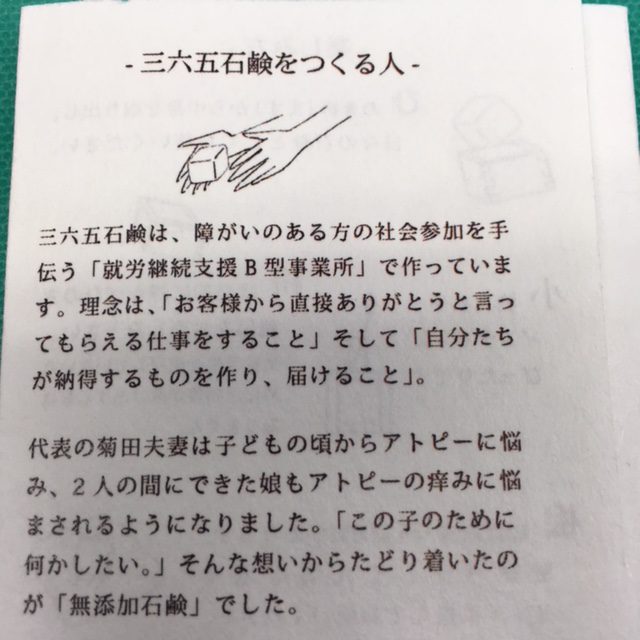 - 三六五石鹸をつくる人 -
三六五石鹸は、障がいのある方の社会参加を手
伝う「就労継続支援B型事業所」で作っていま
す。理念は、「お客様から直接ありがとうと言っ
てもらえる仕事をすること」そして「自分たち
が納得するものを作り、届けること」。
代表の菊田夫妻は子どもの頃からアトピーに悩
み、2人の間にできた娘もアトピーの痒みに悩
まされるようになりました。「この子のために
何かしたい。」そんな想いからたどり着いたの
が「無添加石鹸」でした。